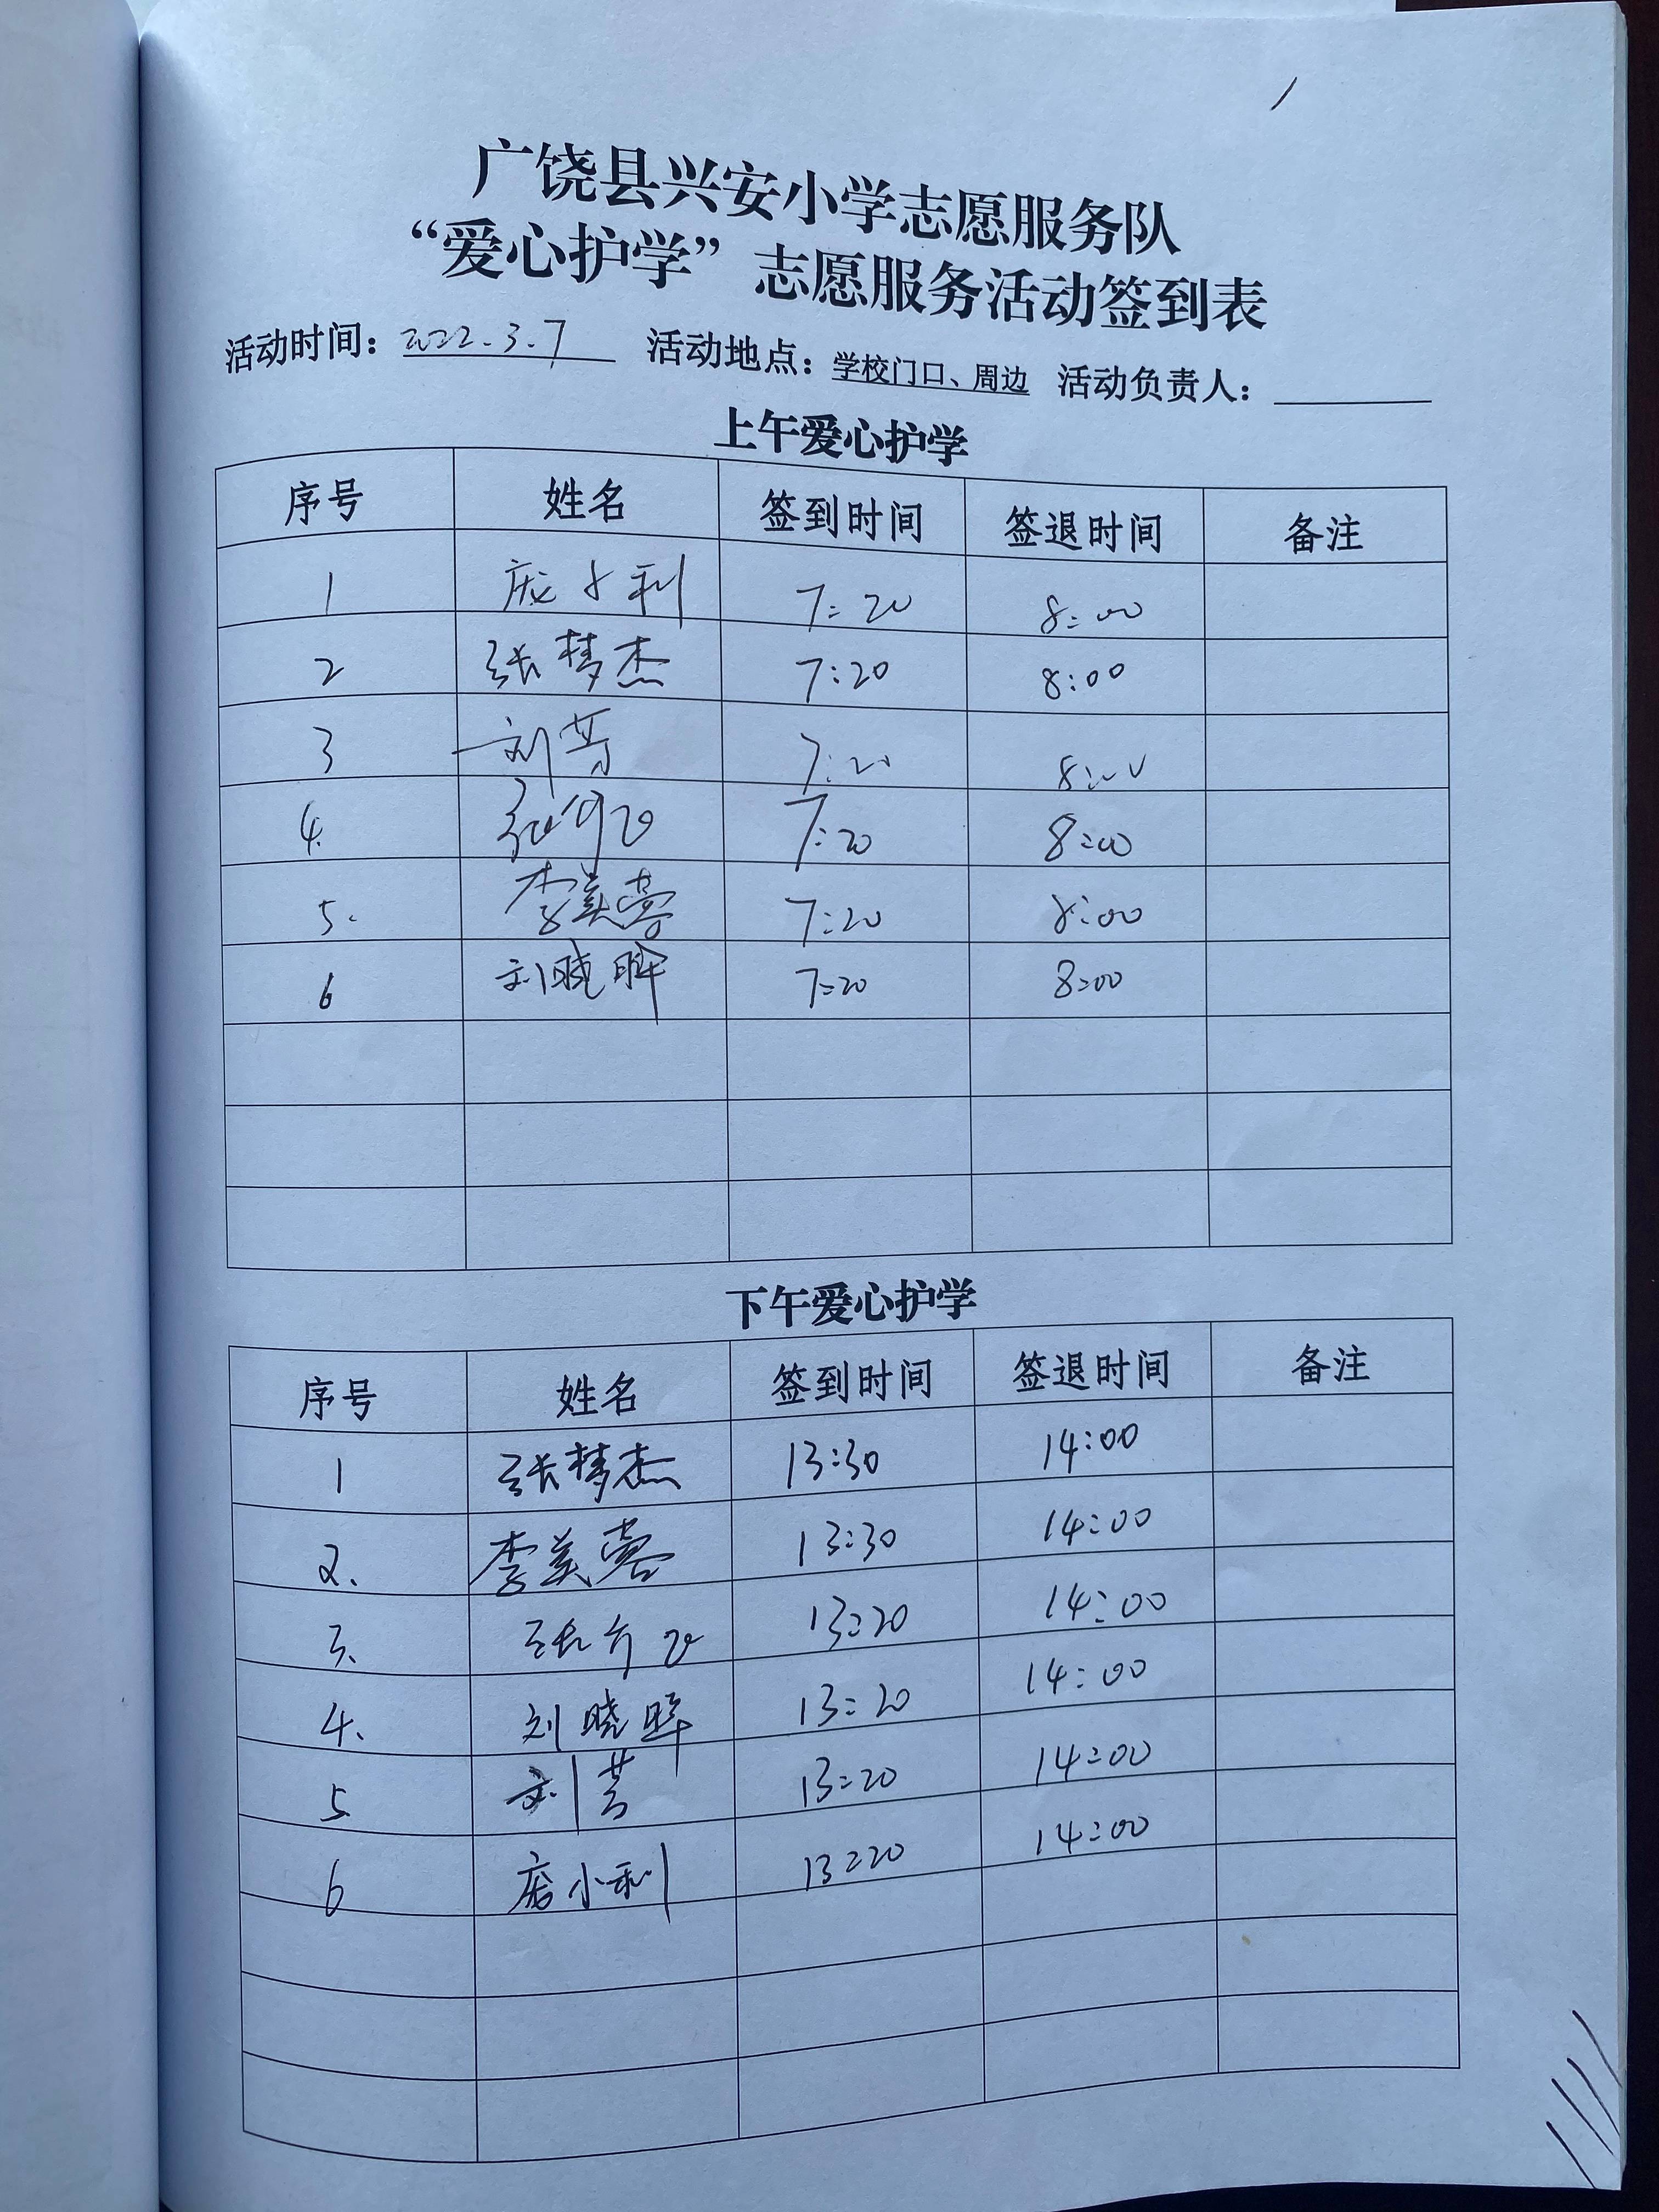 广饶县兴安小学志愿服务队
“爱心护学”志愿服务活动签到表
活动时间：2022.3.7 活动地点：学校门口、周边 活动负责人：
上午爱心护学
序号 姓名 签到时间 签退时间 备注
1 庞小利 7:20 8:00
2 张梦杰 7:20 8:00
3 刘芳 7:20 8:00
4. 7:20 8:00
5. 李美蓉 7:20 8:00
6 刘晓晖 7:20 8:00
下午爱心护学
序号 姓名 签到时间 签退时间 备注
1 张梦杰 13:30 14:00
2、 李美蓉 13:30 14:00
3、 13:20 14:00
4、 刘晓晖 13:20 14:00
5 刘芳 13:20 14:00
6 庞小利 13:20 14:00